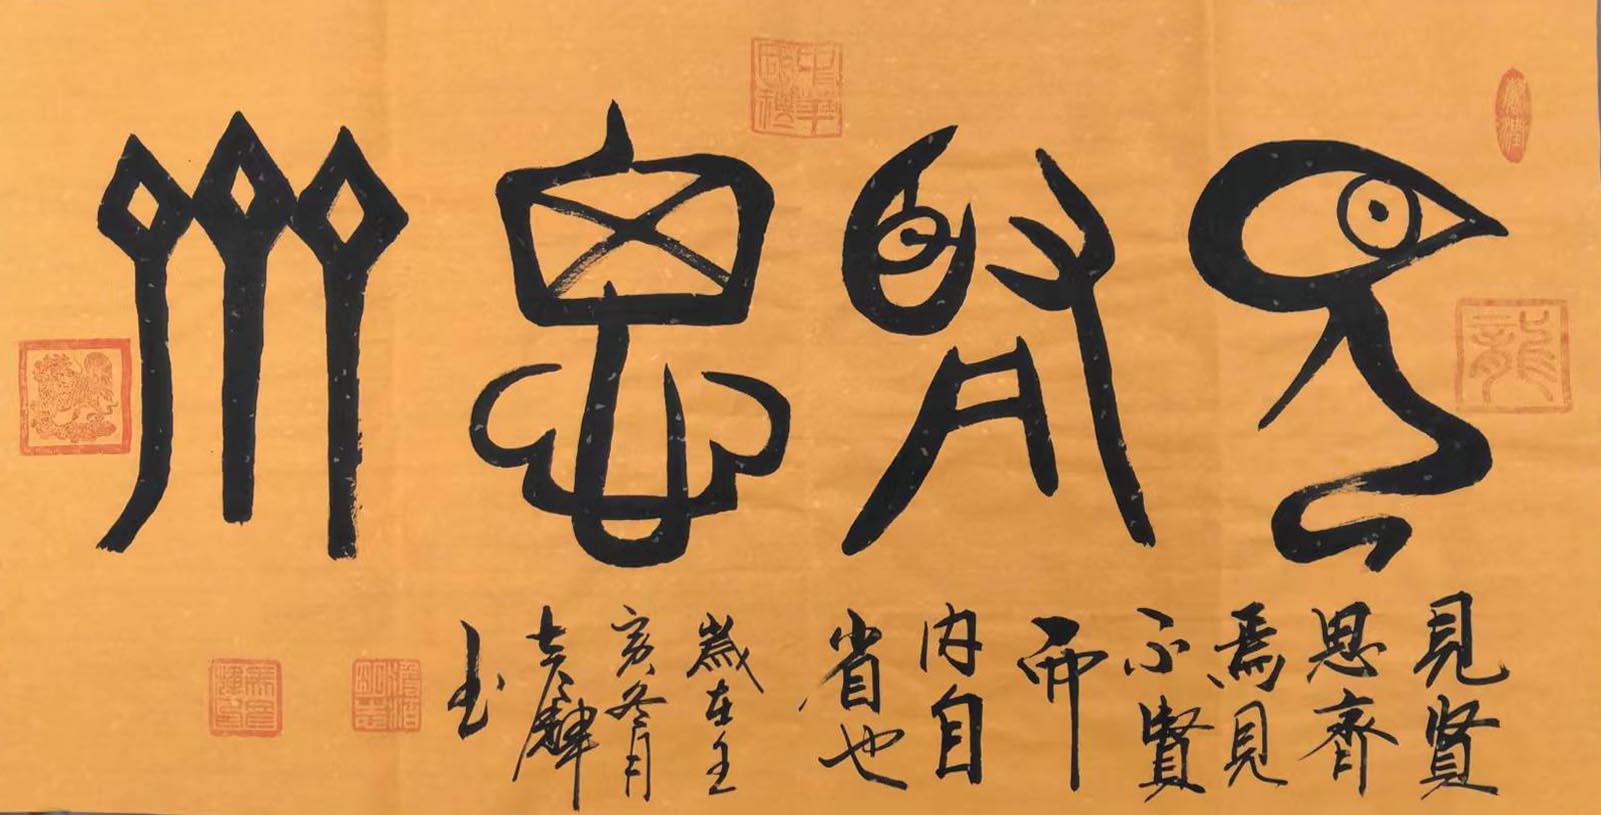 見賢思齊
見賢
思齊
焉見
不賢
而
内自
省也
歲在
亥冬月
龍